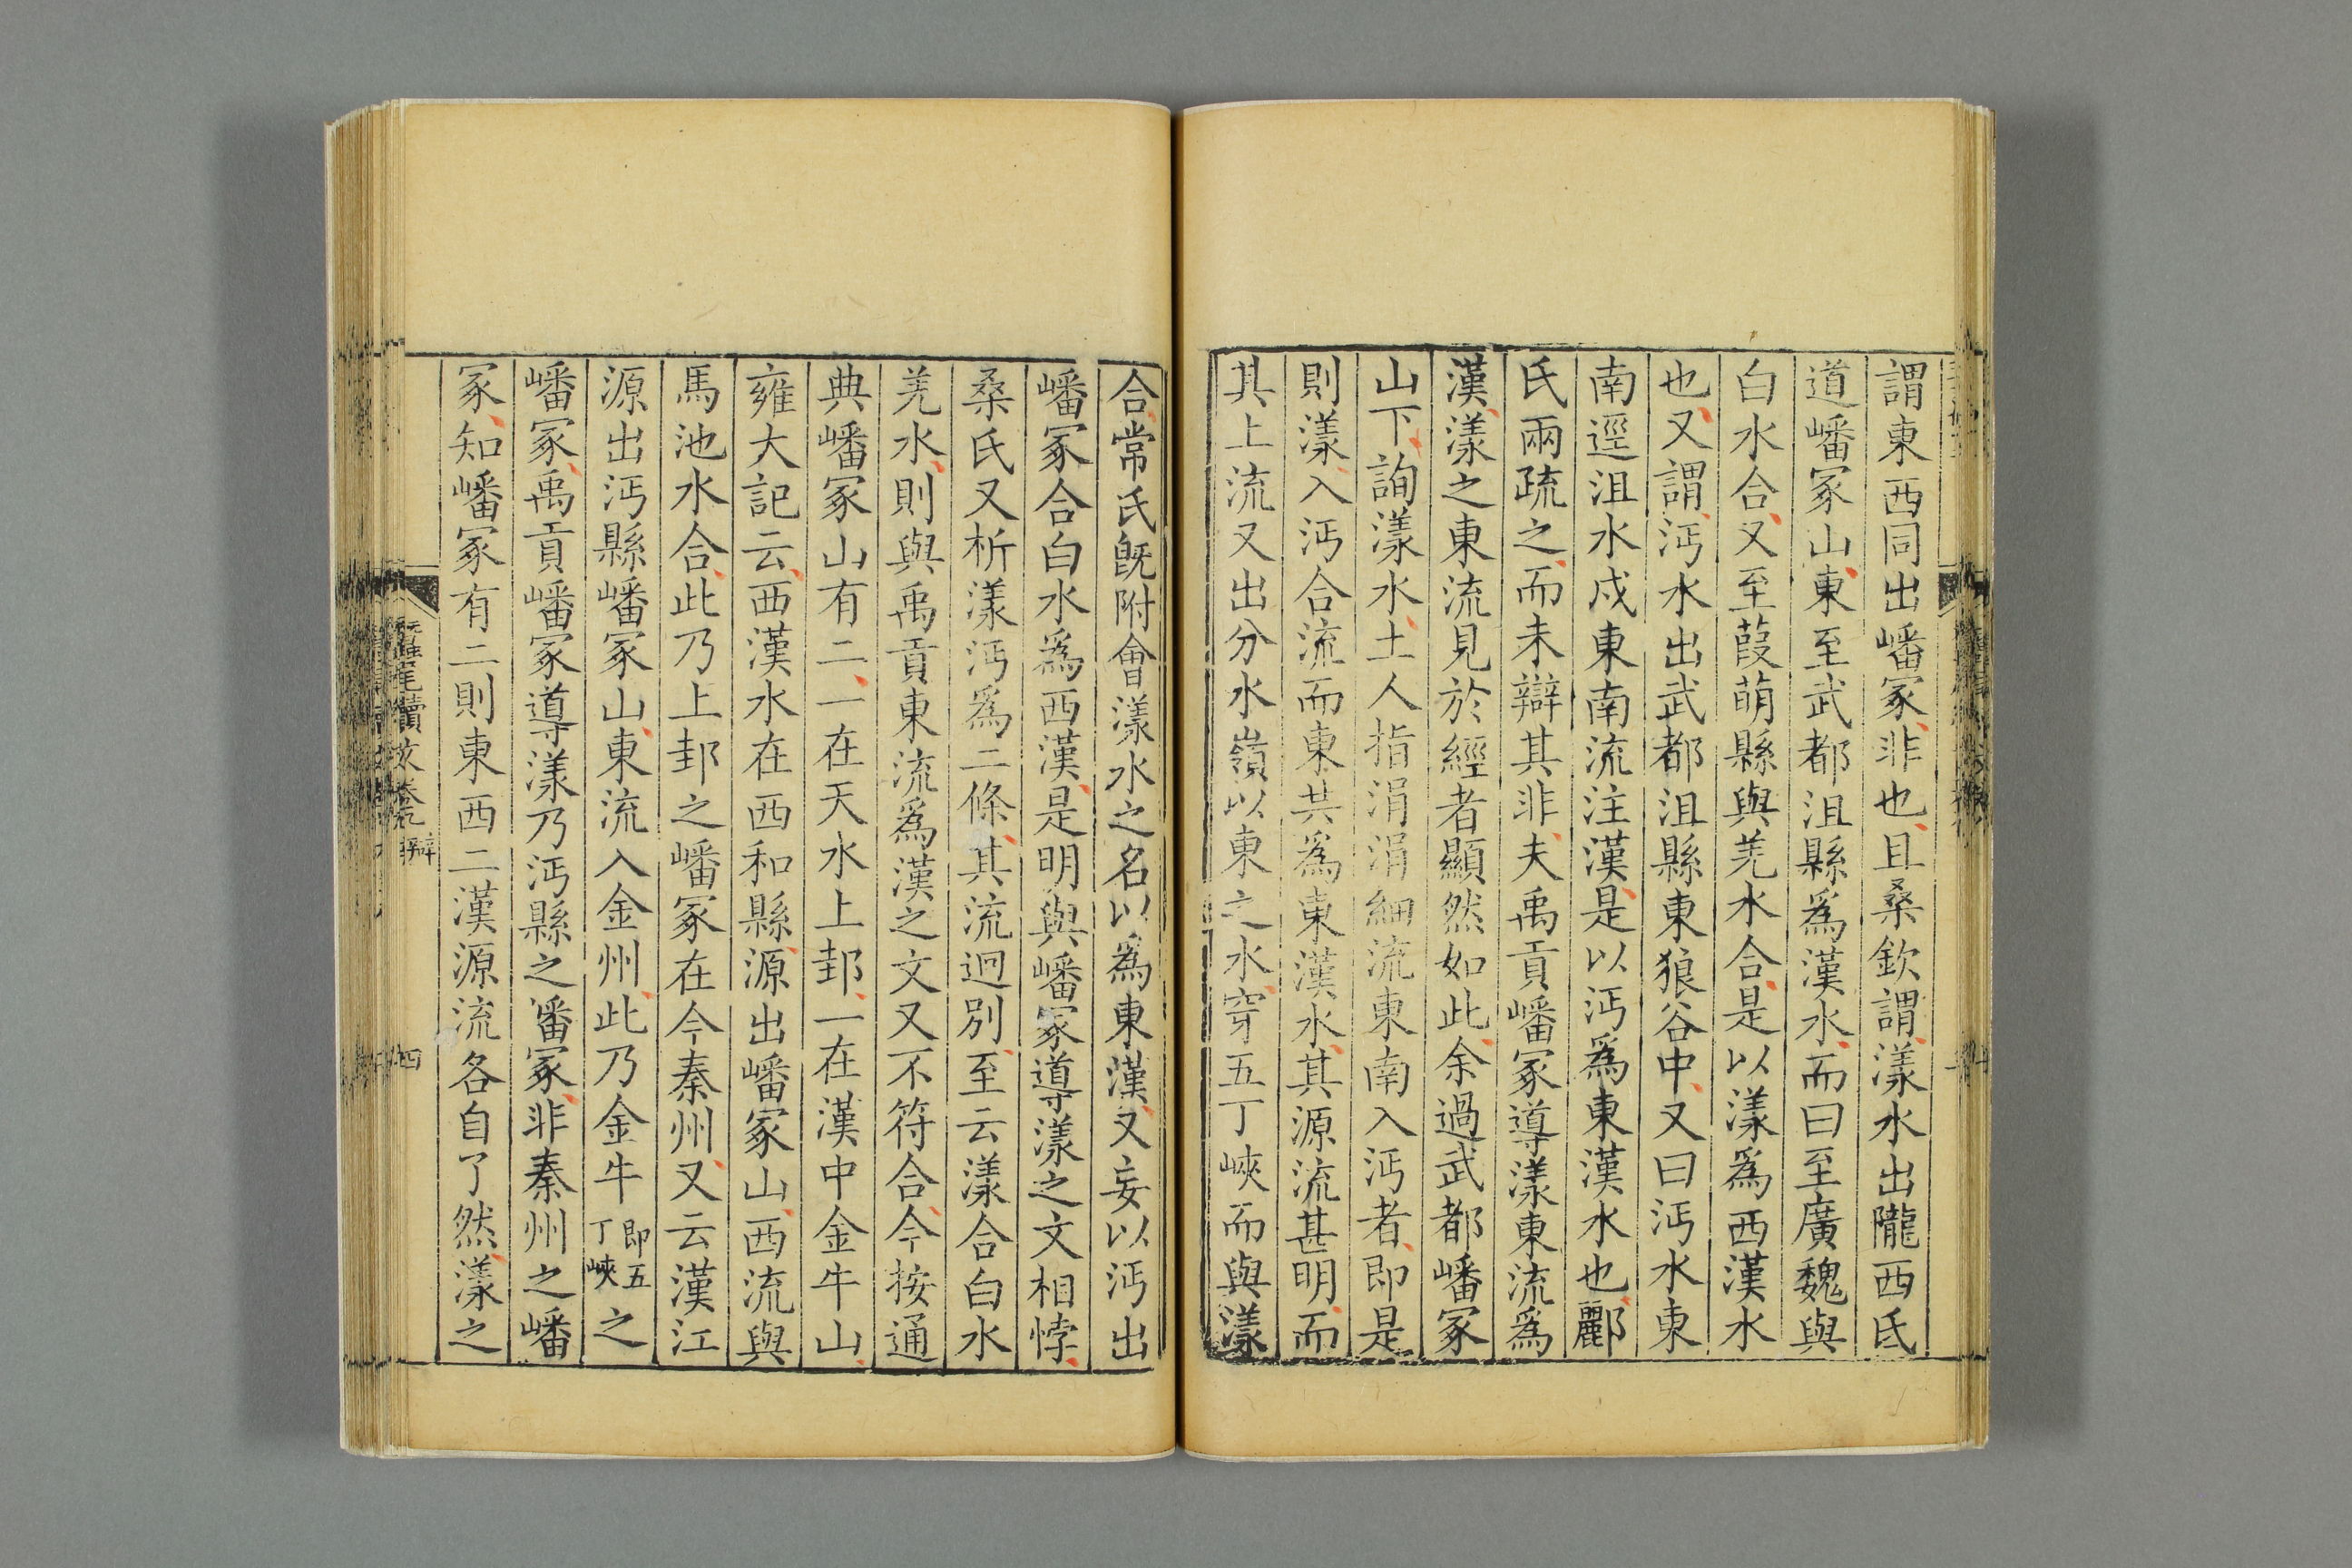 謂東西同出嶓冢非也且桑欽謂漾水出隴西氐
道嶓冢山東至武都沮縣爲漢水而曰至廣魏與
白水合又至葭萌縣與羌水合是以漾爲西漢水
也又謂沔水出武都沮縣東狼谷中又曰沔水東
南逕沮水戍東南流注漢是以沔爲東漢水也酈
氏兩疏之而未辯其非夫禹貢嶓冢導漾東流爲
漢漾之東流見於經者顯然如此余過武都嶓冢
山下詢漾水土人指涓涓細流東南入沔者即是
則漾入沔合流而東共爲東漢水其源流甚明而
其上流又出分水嶺以東之水穿五丁峽而與漾
合常氏旣附會漾水之名以爲東漢又妄以沔出
嶓冢合白水爲西漢是明與嶓冢導漾之文相悖
桑氏又析漾沔爲二條其流迥別至云漾合白水
羌水則與禹貢東流爲漢之文又不符合今按通
典嶓冢山有二一在天水上邽一在漢中金牛山
雍大記云西漢水在西和縣源出嶓冢山西流與
馬池水合此乃上邽之嶓冢在今秦州又云漢江
源出沔縣嶓冢山東流入金州此乃金牛即五丁峽之
嶓冢禹貢嶓冢導漾乃沔縣之嶓冢非秦州之嶓
冢知嶓冢有二則東西二漢源流各自了然漾之
蠶尾續文卷 辯
四